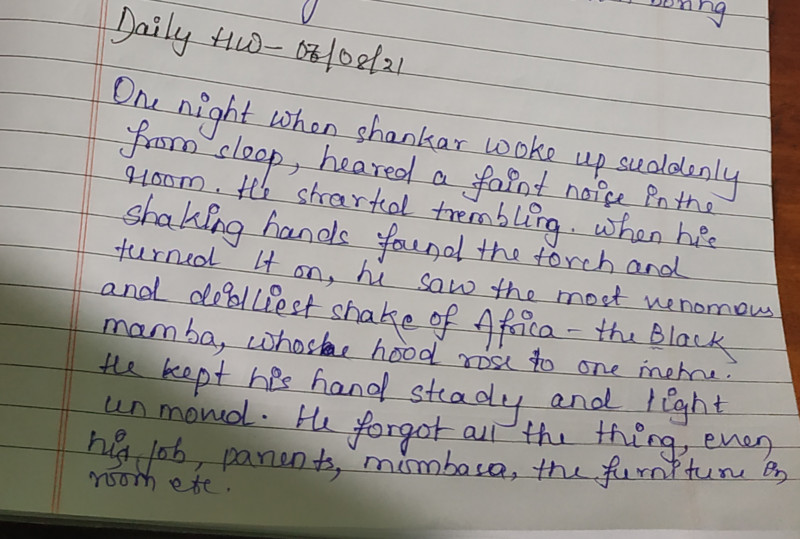 Daily HW - 08/08/21
One night when shankar woke up suddenly
from sleep, heared a faint noise in the
room. He strarted trembling. When his
shaking hands found the torch and
turned it on, he saw the most venomous
and deadliest snake of Africa - the Black
mamba, whose hood rose to one metre.
He kept his hand steady and light
unmoved. He forgot all the thing, even
his job, parents, mombasa, the furniture in
room etc.